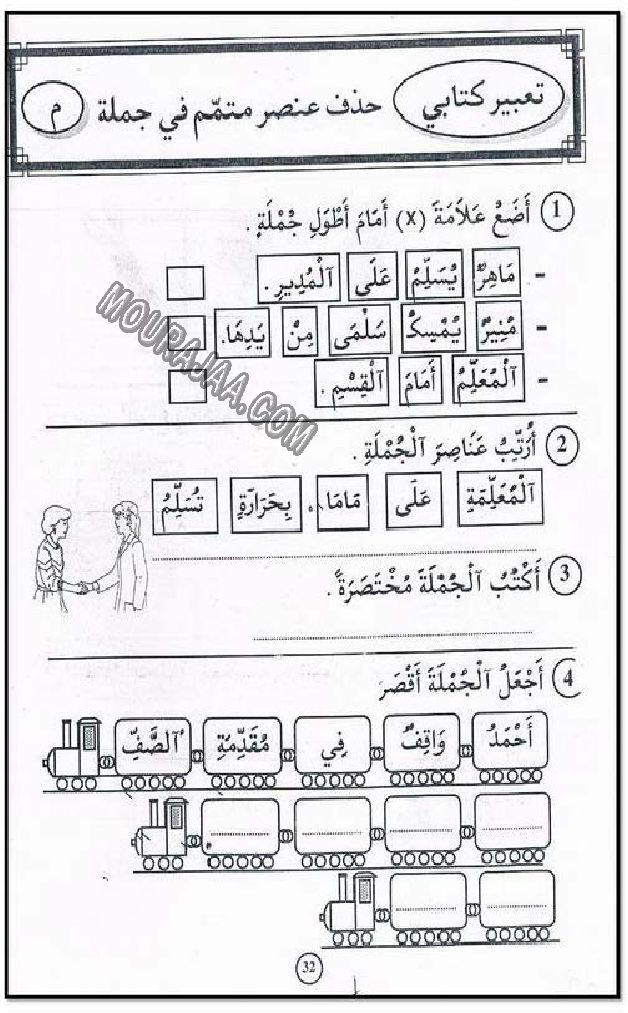 تعبير كتابي حذف عنصر متمّم في جملة م
1 أَضَعُ عَلاَمَةَ (x) أَمَامَ أَطْوَلِ جُمْلَةٍ .
- مَاهِرٌ يُسَلِّمُ عَلَى ٱلْمُدِيرِ .
- مُنِيرٌ يُمْسِكُ سَلْمَى مِنْ يَدِهَا.
- ٱلْمُعَلِّمُ أَمَامَ ٱلْقِسْمِ .
MOURAJAA.COM
2 أُرَتِّبُ عَنَاصِرَ ٱلْجُمْلَةِ .
ٱلْمُعَلِّمَةِ عَلَى مَامَا . بِحَرَارَةٍ تُسَلِّمُ
3 أَكْتُبُ ٱلْجُمْلَةَ مُخْتَصَرَةً .
4 أَجْعَلُ ٱلْجُمْلَةَ أَقْصَرَ
أَحْمَدُ وَاقِفٌ فِي مُقَدِّمَةِ ٱلصَّفِّ
32